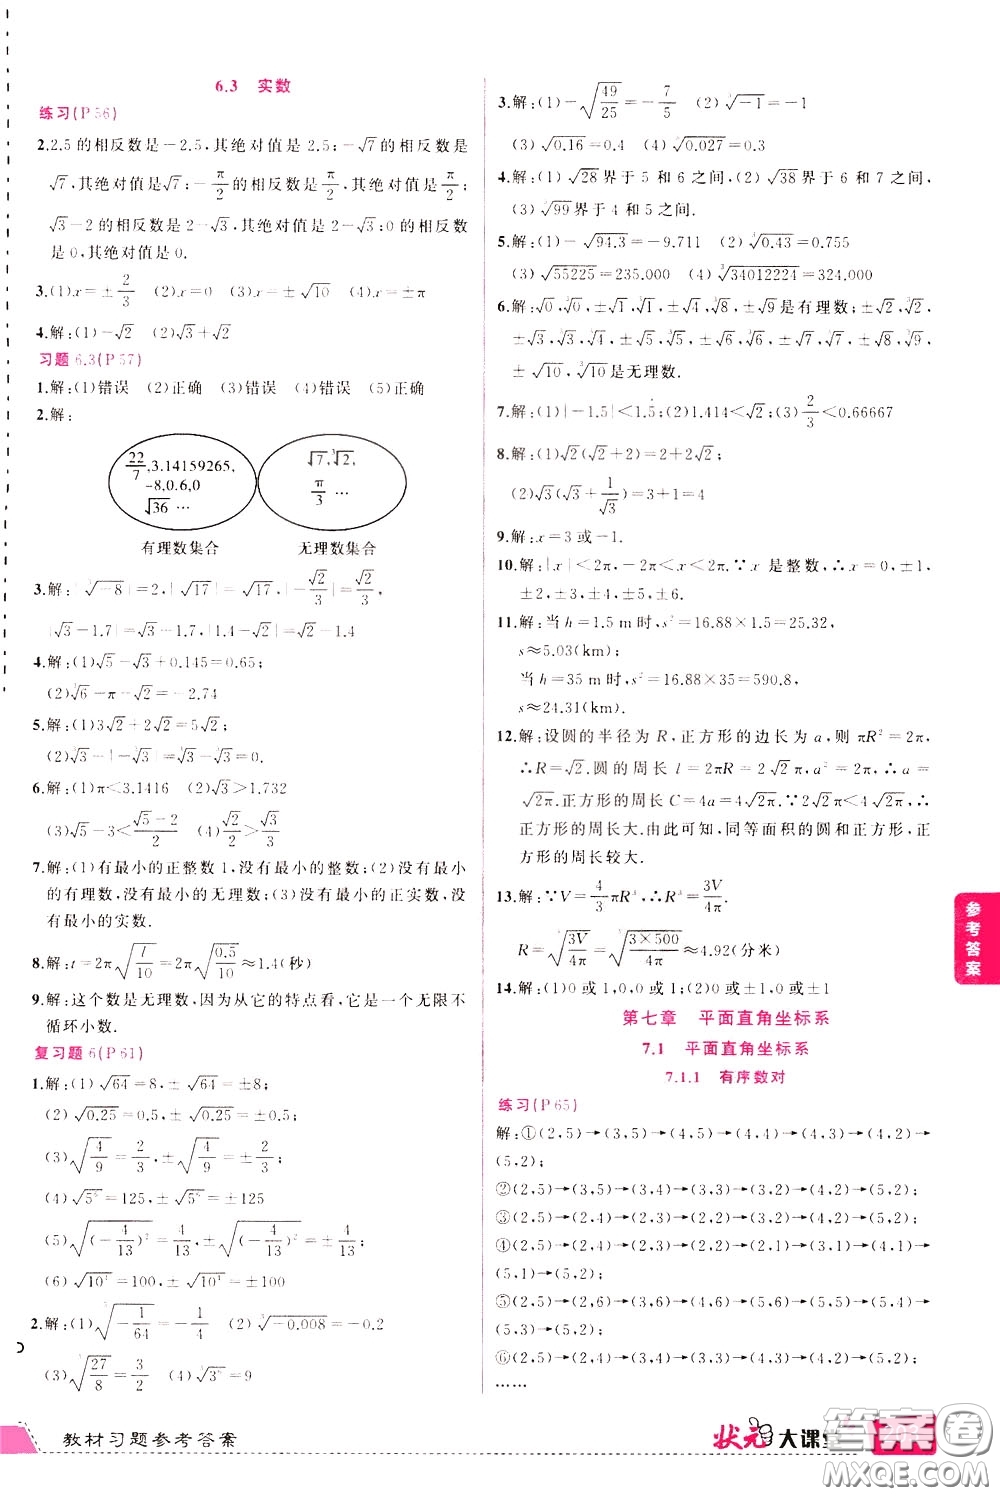 6.3 实数
练习(P56)
2.2.5的相反数是-2.5,其绝对值是2.5;-√7的相反数是
√7,其绝对值是√7;-π/2的相反数是π/2,其绝对值是π/2;
√3-2的相反数是2-√3,其绝对值是2-√3;0的相反数
是0,其绝对值是0.
3.(1)x=±2/3 (2)x=0 (3)x=±√10 (4)x=±π
4.解:(1)-√2 (2)√3+√2
习题6.3(P57)
1.解:(1)错误 (2)正确 (3)错误 (4)错误 (5)正确
2.解:
22/7,3.14159265,
-8,0.6,0
√36 …
√7,∛2,
π/3 …
有理数集合 无理数集合
3.解:|∛-8|=2,|√17|=√17,|-√2/3|=√2/3,
|√3-1.7|=√3-1.7,|1.4-√2|=√2-1.4
4.解:(1)√5-√3+0.145=0.65;
(2)∛6-π-√2=-2.74
5.解:(1)3√2+2√2=5√2;
6.解:(1)π<3.1416 (2)√3>1.732
(3)√5-3<(√5-2)/2 (4)√2/2<√3/3
7.解:(1)有最小的正整数1,没有最小的整数;(2)没有最小
的有理数,没有最小的无理数;(3)没有最小的正实数,没
有最小的实数.
8.解:t=2π√(l/10)=2π√(0.5/10)≈1.4(秒)
9.解:这个数是无理数,因为从它的特点看,它是一个无限不
循环小数.
复习题6(P61)
1.解:(1)√64=8,±√64=±8;
(2)√0.25=0.5,±√0.25=±0.5;
(3)√(4/9)=2/3,±√(4/9)=±2/3;
(4)√5⁶=125,±√5⁶=±125
(5)√(-4/13)²=4/13,±√(-4/13)²=±4/13;
(6)√10⁴=100,±√10⁴=±100
2.解:(1)∛(-1/64)=-1/4 (2)∛-0.008=-0.2
(3)∛(27/8)=3/2 (4)=9
3.解:(1)-√(49/25)=-7/5 (2)∛-1=-1
(3)√0.16=0.4 (4)∛0.027=0.3
4.解:(1)√28界于5和6之间,(2)√38界于6和7之间,
(3)∛99界于4和5之间.
5.解:(1)-√94.3=-9.711 (2)∛0.43=0.755
(3)√55225=235.000 (4)∛34012224=324.000
6.解:√0,∛0,±√1,∛1,±√4,∛8,±√9是有理数;±√2,∛2,
±√3,∛3,∛4,±√5,∛5,±√6,∛6,±√7,∛7,±√8,∛9,
±√10,∛10是无理数.
7.解:(1)|-1.5|<1.5;(2)1.414<√2;(3)2/3<0.66667
8.解:(1)√2(√2+2)=2+2√2;
(2)√3(√3+1/√3)=3+1=4
9.解:x=3或-1.
10.解:|x|<2π,-2π<x<2π.∵x是整数,x=0,±1,
±2,±3,±4,±5,±6.
11.解:当h=1.5 m时,s²=16.88×1.5=25.32,
s≈5.03(km);
当h=35 m时,s²=16.88×35=590.8,
s≈24.31(km).
12.解:设圆的半径为R,正方形的边长为a,则πR²=2π,
∴R=√2.圆的周长l=2πR=2√2π,a²=2π,a=
√2π.正方形的周长C=4a=4√2π.∵2√2π<4√2π,∴
正方形的周长大.由此可知,同等面积的圆和正方形,正
方形的周长较大.
13.解:∵V=4/3πR³,∴R³=3V/4π.
R=∛(3V/4π)=∛(3×500/4π)≈4.92(分米)
14.解:(1)0或1,0,1;(2)0或±1
第七章 平面直角坐标系
7.1 平面直角坐标系
7.1.1 有序数对
练习(P65)
解:①(2,5)→(3,5)→(4,5)→(4,4)→(4,3)→(4,2)→
(5,2);
②(2,5)→(3,5)→(3,4)→(3,3)→(3,2)→(4,2)→(5,2);
③(2,5)→(2,4)→(2,3)→(2,2)→(3,2)→(4,2)→(5,2);
④(2,5)→(2,4)→(2,3)→(2,2)→(2,1)→(3,1)→(4,1)→
(5,1)→(5,2);
⑤(2,5)→(2,6)→(3,6)→(4,6)→(5,6)→(5,5)→(5,4)→
(5,3)→(5,2);
⑥(2,5)→(2,4)→(3,4)→(3,3)→(4,3)→(4,2)→(5,2);
……
参考答案
教材习题参考答案
状元大课堂
答案卷
MXQE.COM